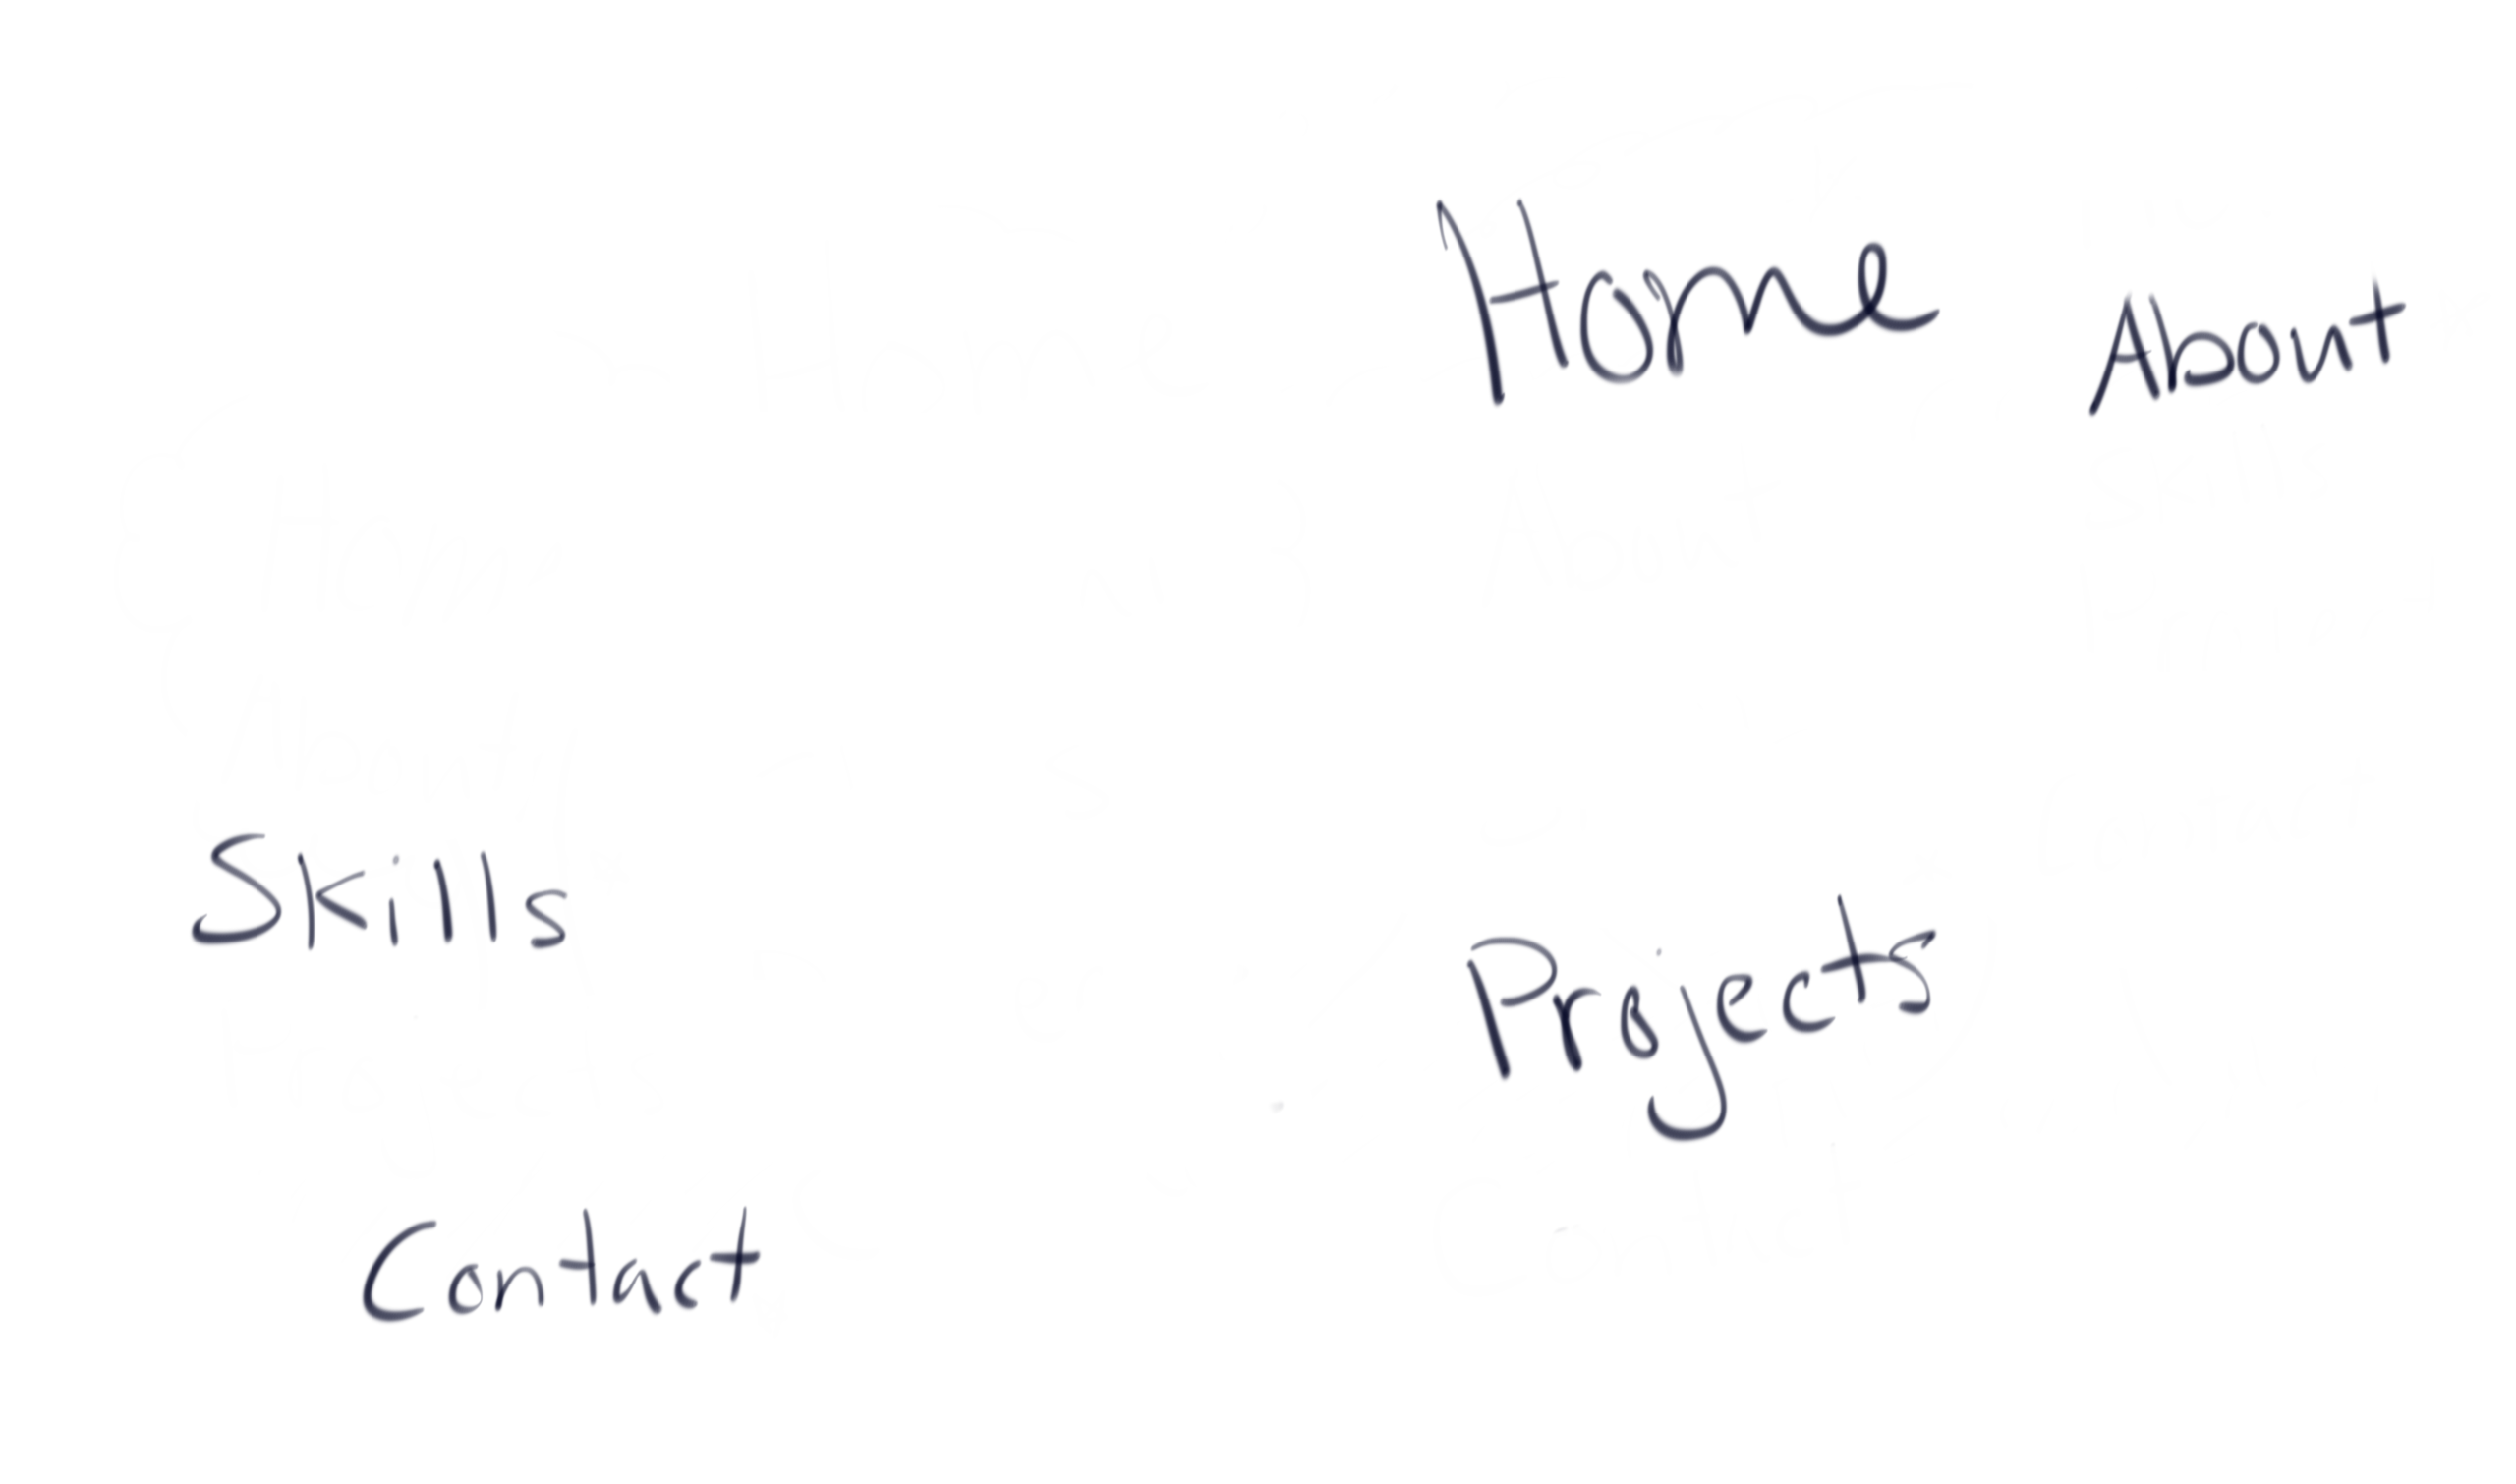 Home
About
Skills
Projects
Contact